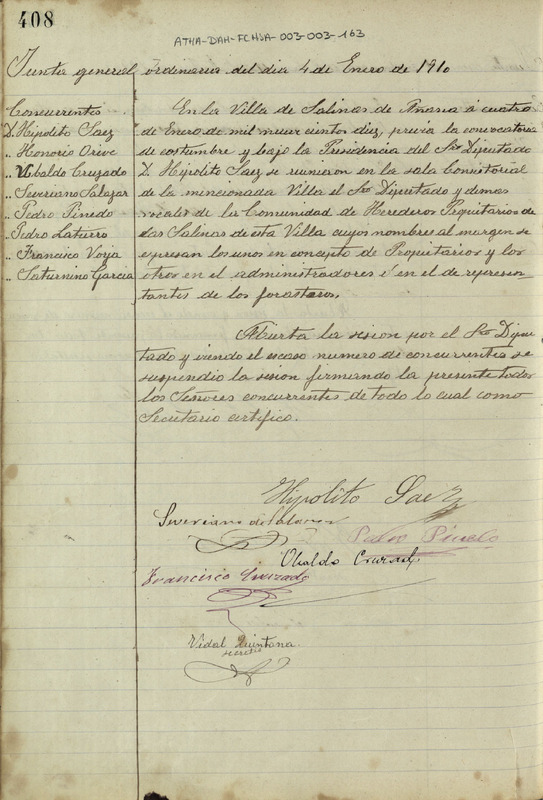 408
ATHA-DAH-FCHSA-003-003-163
Junta general, ordinaria del dia 4 de Enero de 1910
Concurrentes
D. Hipolito Saez
.. Honorio Orive
.. Ubaldo Cruzado
.. Severiano Salazar
.. Pedro Pinedo
.. Pedro Laturro
.. Francisco
.. Saturnino Garcia
En la Villa de Salinas de Añana á cuatro
de Enero de mil nuvecientos diez, previa la convocatoria
de costumbre y bajo la Presidencia del Sor Diputado
D. Hipolito Saez se reunieron en la sala Consistorial
de la mencionada Villa el Sor Diputado y demas
vocales de la Comunidad de Herederos Propietarios de
las Salinas de esta Villa cuyos nombres al margen se
expresan los unos en concepto de Propietarios y los
otros en el administradores ó en el de represen-
tantes de los forasteros.
Abierta la sesion por el Sor Dipu-
tado y viendo el escaso numero de concurrentes se
suspendio la sesion firmando la presente todos
los Señores concurrentes de todo lo cual como
Secretario certifico.
Hipolito Saez
Severiano de Salazar
Pedro Pinedo
Ubaldo Cruzado
Francisco
Vidal Quintana
secretio